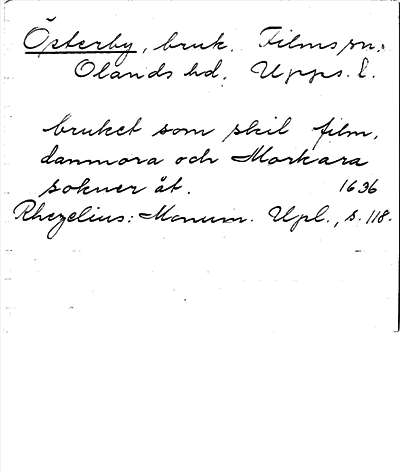 Österby, bruk. Films sn.
Olands hd. Upps. l.
bruket som skil film,
danmora och Morkara
sokner åt. 1636
Rhezelius: Monum. Upl., s. 118.